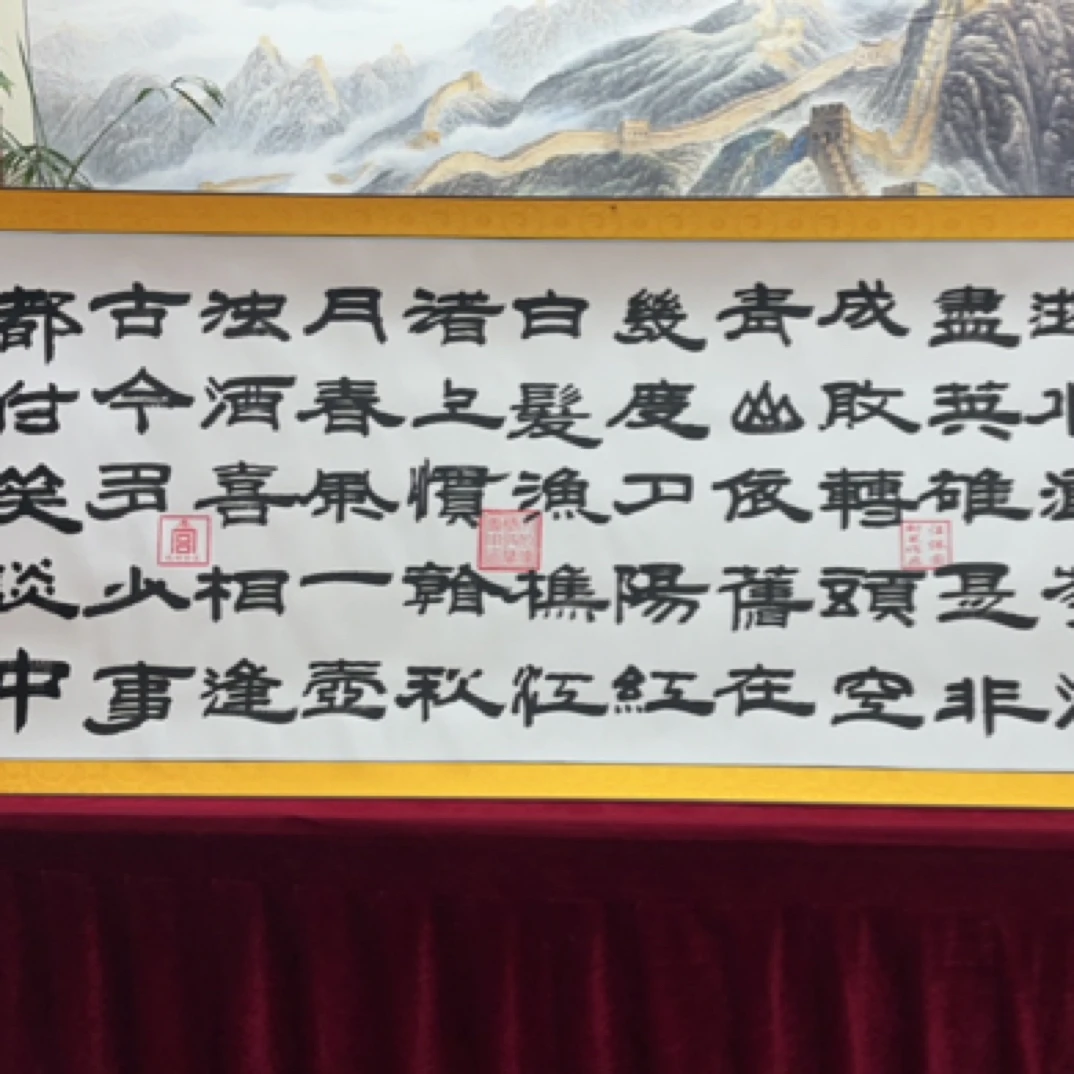 盡英雄是非
成敗轉頭空
青山依舊在
幾度夕陽紅
白髮漁樵江
渚上慣看秋
月春風一壺
浊酒喜相逢
古今多少事
都付笑談中